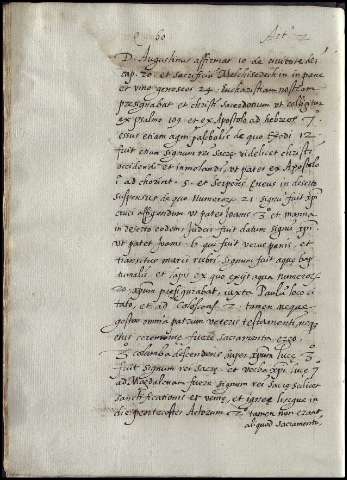 q. 60 Art. 2
D. Augustinus affirmat 10 de civitate dei
cap. 20. et sacrificiu Melchisedech in pane
et vino geneseos 24. Eucharistiam nostram
presignabat et christi sacerdotium ut colligitur
ex psalmo 109. et ex Apostolo ad hebreos 7
esus etiam agni paschalis de quo Exodi 12
fuit etiam signum rei sacre videlicet christi
occidendi et immolandi, ut patet ex Apostolo
1 ad chorint. 5. et serpens eneus in deserto
suspensus de quo Numeror. 21 signu fuit xpi
cruci affigendum ut patet Joanis 3. et manna
in deserto eodem Judeis fuit datum signu xpi
ut patet Joanis 6 qui fuit verus panis, et
transitus maris rubri signum fuit aque bap
tismalis et lapis ex quo exijt aqua numeror.
20 xpum presignabat, iuxta Paulu loco ci
tato, et ad Colossens. 2. tamen neque
gestus omnia patrum veteris testamenti neque
ceremonie fuere sacramenta ergo.
3. columba descendens super xpum luce 3
fuit signum rei sacre et verba xpi luce 7
ad Magdalenam fuere signum rei sacre scilicet
sanctificationis et venie, et igneae linguae in
die pentecostes Actorum 2. tamen non erant
aliquod sacramento.